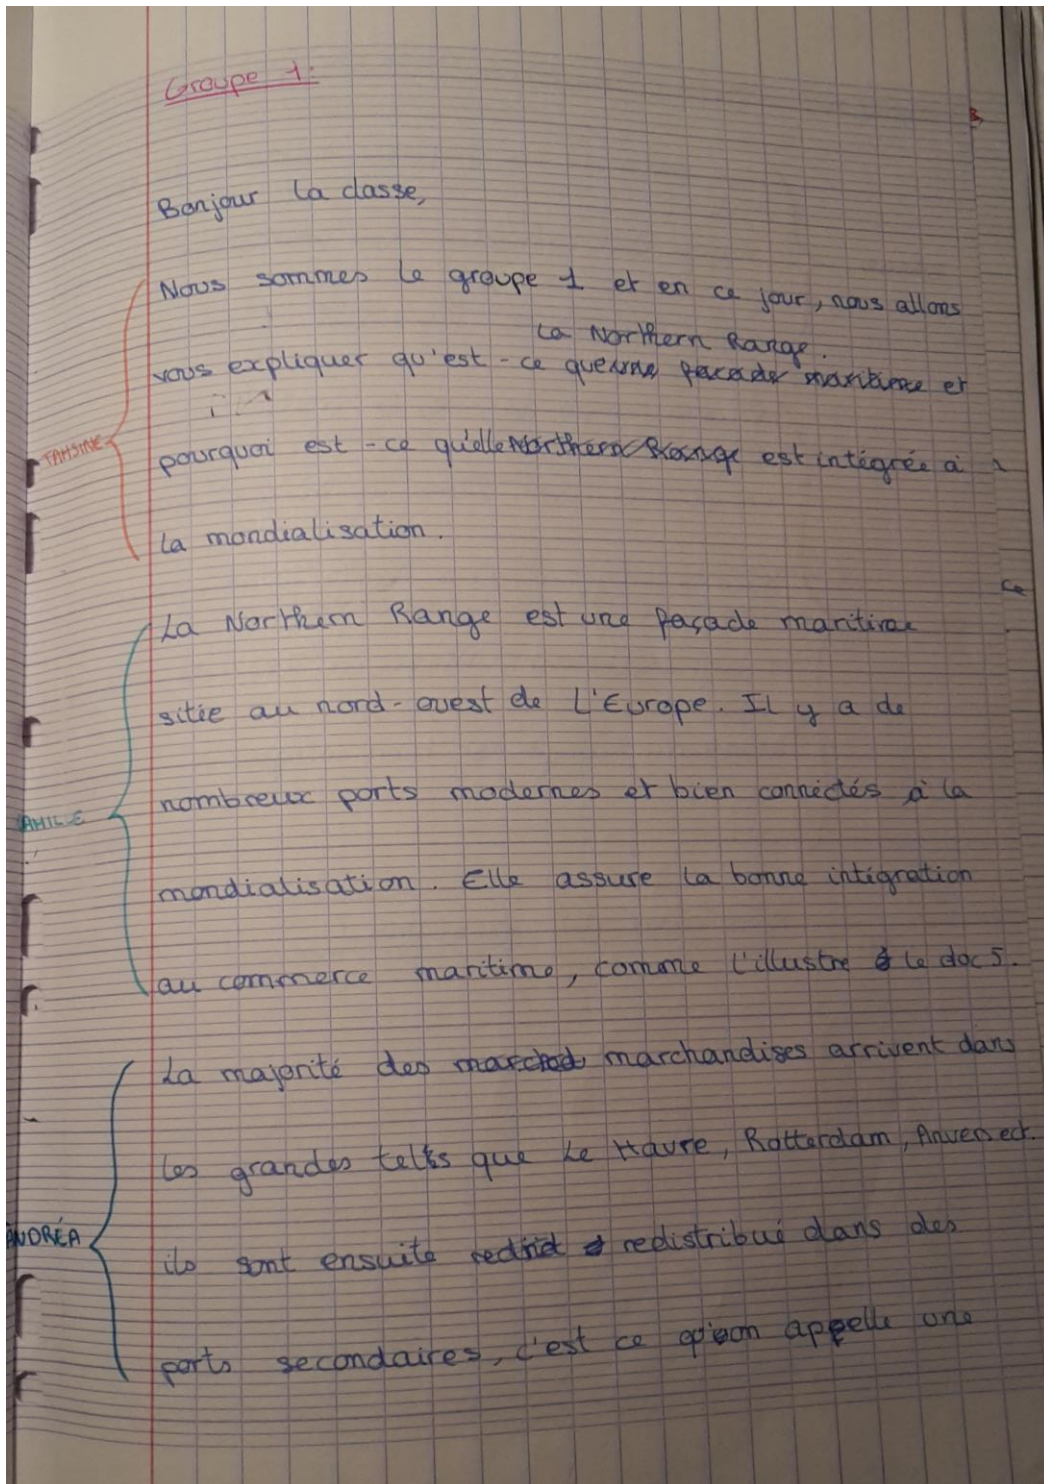 Groupe 1:
Bonjour la classe,
Nous sommes le groupe 1 et en ce jour, nous allons
La Northern Range.
vous expliquer qu'est-ce que une façade maritime et
TAHSINE
pourquoi est-ce qu'elle Northern Range est intégrée à
la mondialisation.
ce
La Northern Range est une façade maritime
sitée au nord-ouest de L'Europe. Il y a de
nombreux ports modernes et bien connéctés à la
AMILLE
mondialisation. Elle assure la bonne intégration
au commerce maritime, comme l'illustre le doc 5.
La majorité des marchandises arrivent dans
les grandes telles que Le Havre, Rotterdam, Anvers ect.
ANDRÉA
ils sont ensuite redistribué dans des
ports secondaires, c'est ce qu'on appelle une